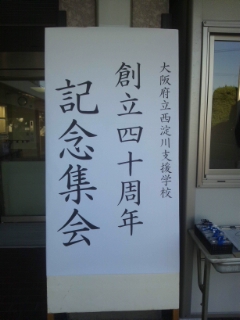 大阪府立西淀川支援学校
創立四十周年
記念集会